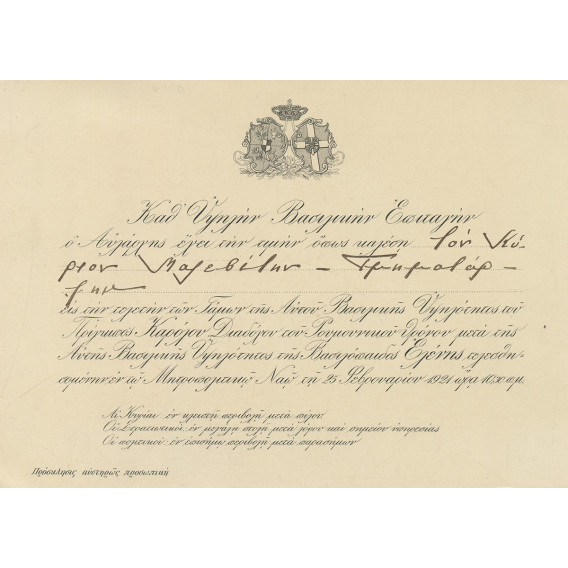 Καθ' Ὑψηλὴν Βασιλικὴν Ἐπιταγὴν
ὁ Αὐλάρχης ἔχει τὴν τιμὴν ὅπως καλέσῃ τὸν Κύ-
ριον Μαλεβίτην – Τμηματάρ-
χην
εἰς τὴν τελετὴν τῶν Γάμων τῆς Αὐτοῦ Βασιλικῆς Ὑψηλότητος τοῦ
Πρίγκιπος Καρόλου Διαδόχου τοῦ Ρουμανικοῦ Θρόνου μετὰ τῆς
Αὐτῆς Βασιλικῆς Ὑψηλότητος τῆς Βασιλόπαιδος Ἑλένης τελεσθη-
σομένην ἐν τῷ Μητροπολιτικῷ Ναῷ τῇ 25 Φεβρουαρίου 1921 ὥρᾳ 10,30 π.μ.
Αἱ Κυρίαι ἐν κλειστῇ περιβολῇ μετὰ πίλου
Οἱ Στρατιωτικοὶ ἐν μεγάλῃ στολῇ μετὰ λόφου καὶ σημείου ὑπηρεσίας
Οἱ πολιτικοὶ ἐν ἐπισήμῳ περιβολῇ μετὰ παρασήμων
Πρόσκλησις αὐστηρῶς προσωπική